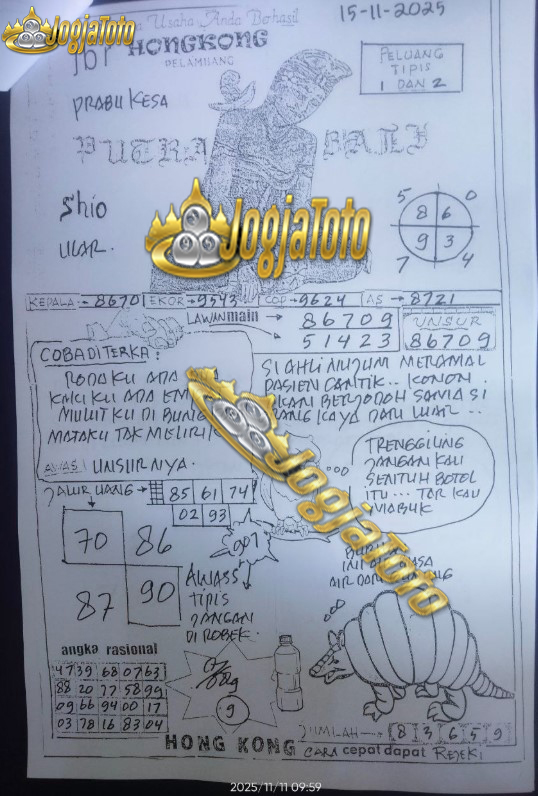 Usaha Anda Berhasil
15-11-2025
JogjaToto
HONGKONG
PELAMBANG
PELUANG
TIPIS
1 DAN 2
PRABU KESA
PUTRA BALI
Shio
ULAR.
5 0
8 6
9 3
7 4
JogjaToto
KEPALA → 8670 EKOR → 9543 COP → 9624 AS → 8721
LAWAN main
86709
51423
UNSUR
86709
COBA DITERKA:
RODA KU ADA
KAKI KU ADA
MULUT KU DI
MATAKU TAK MELIRIK
AWAS! UNSURNYA.
SI AHLI NUJUM MERAMAL
PASIEN CANTIK.. KONON.
BERJODOH SAMA SI
KAYA DARI LUAR..
TRENGGILING
JANGAN KAU
SENTUH BOTOL
ITU... TAR KAU
MABUK
JogjaToto
JALUR UANG → 85 61 74
02 93
907
70 86
87 90
AWASS
TIPIS
JANGAN
DI ROBEK.
INI
AIR DARI
angka rasional
47 39 68 07 63
88 20 77 58 99
09 66 94 00 17
03 78 16 83 04
9
JUMLAH → 8 3 6 5 9
HONG KONG CARA cepat dapat REJEKI
2025/11/11 09:59